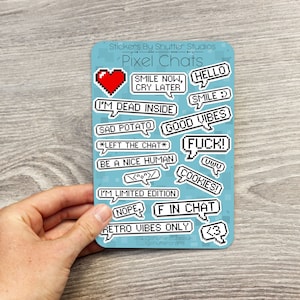 Stickers By Shutter Studios
Pixel Chats
SMILE NOW,
CRY LATER
HELLO
SMILE :)
I'M DEAD INSIDE
GOOD VIBES
SAD POTATO
*LEFT THE CHAT*
FUCK!
BE A NICE HUMAN
COOKIES!
I'M LIMITED EDITION
NOPE.
F IN CHAT
RETRO VIBES ONLY
<3